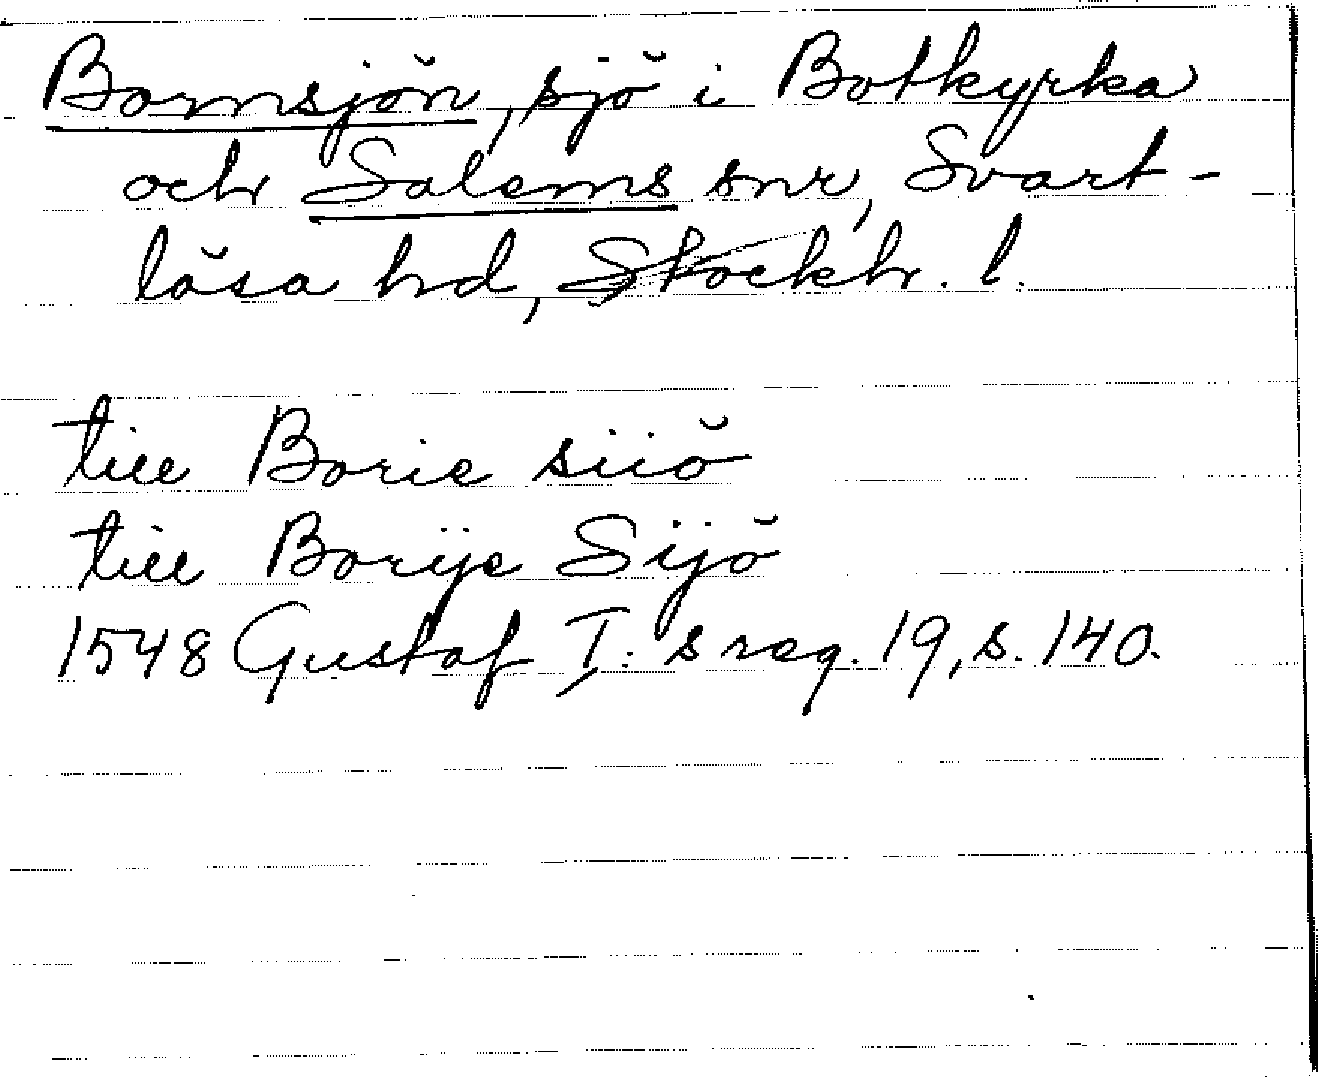 Bornsjön, sjö i Botkyrka
och Salems snr, Svart-
lösa hd, Stockh. l.
till Borie siiö
till Borije Sijö
1548 Gustaf I:s reg. 19, s. 140.